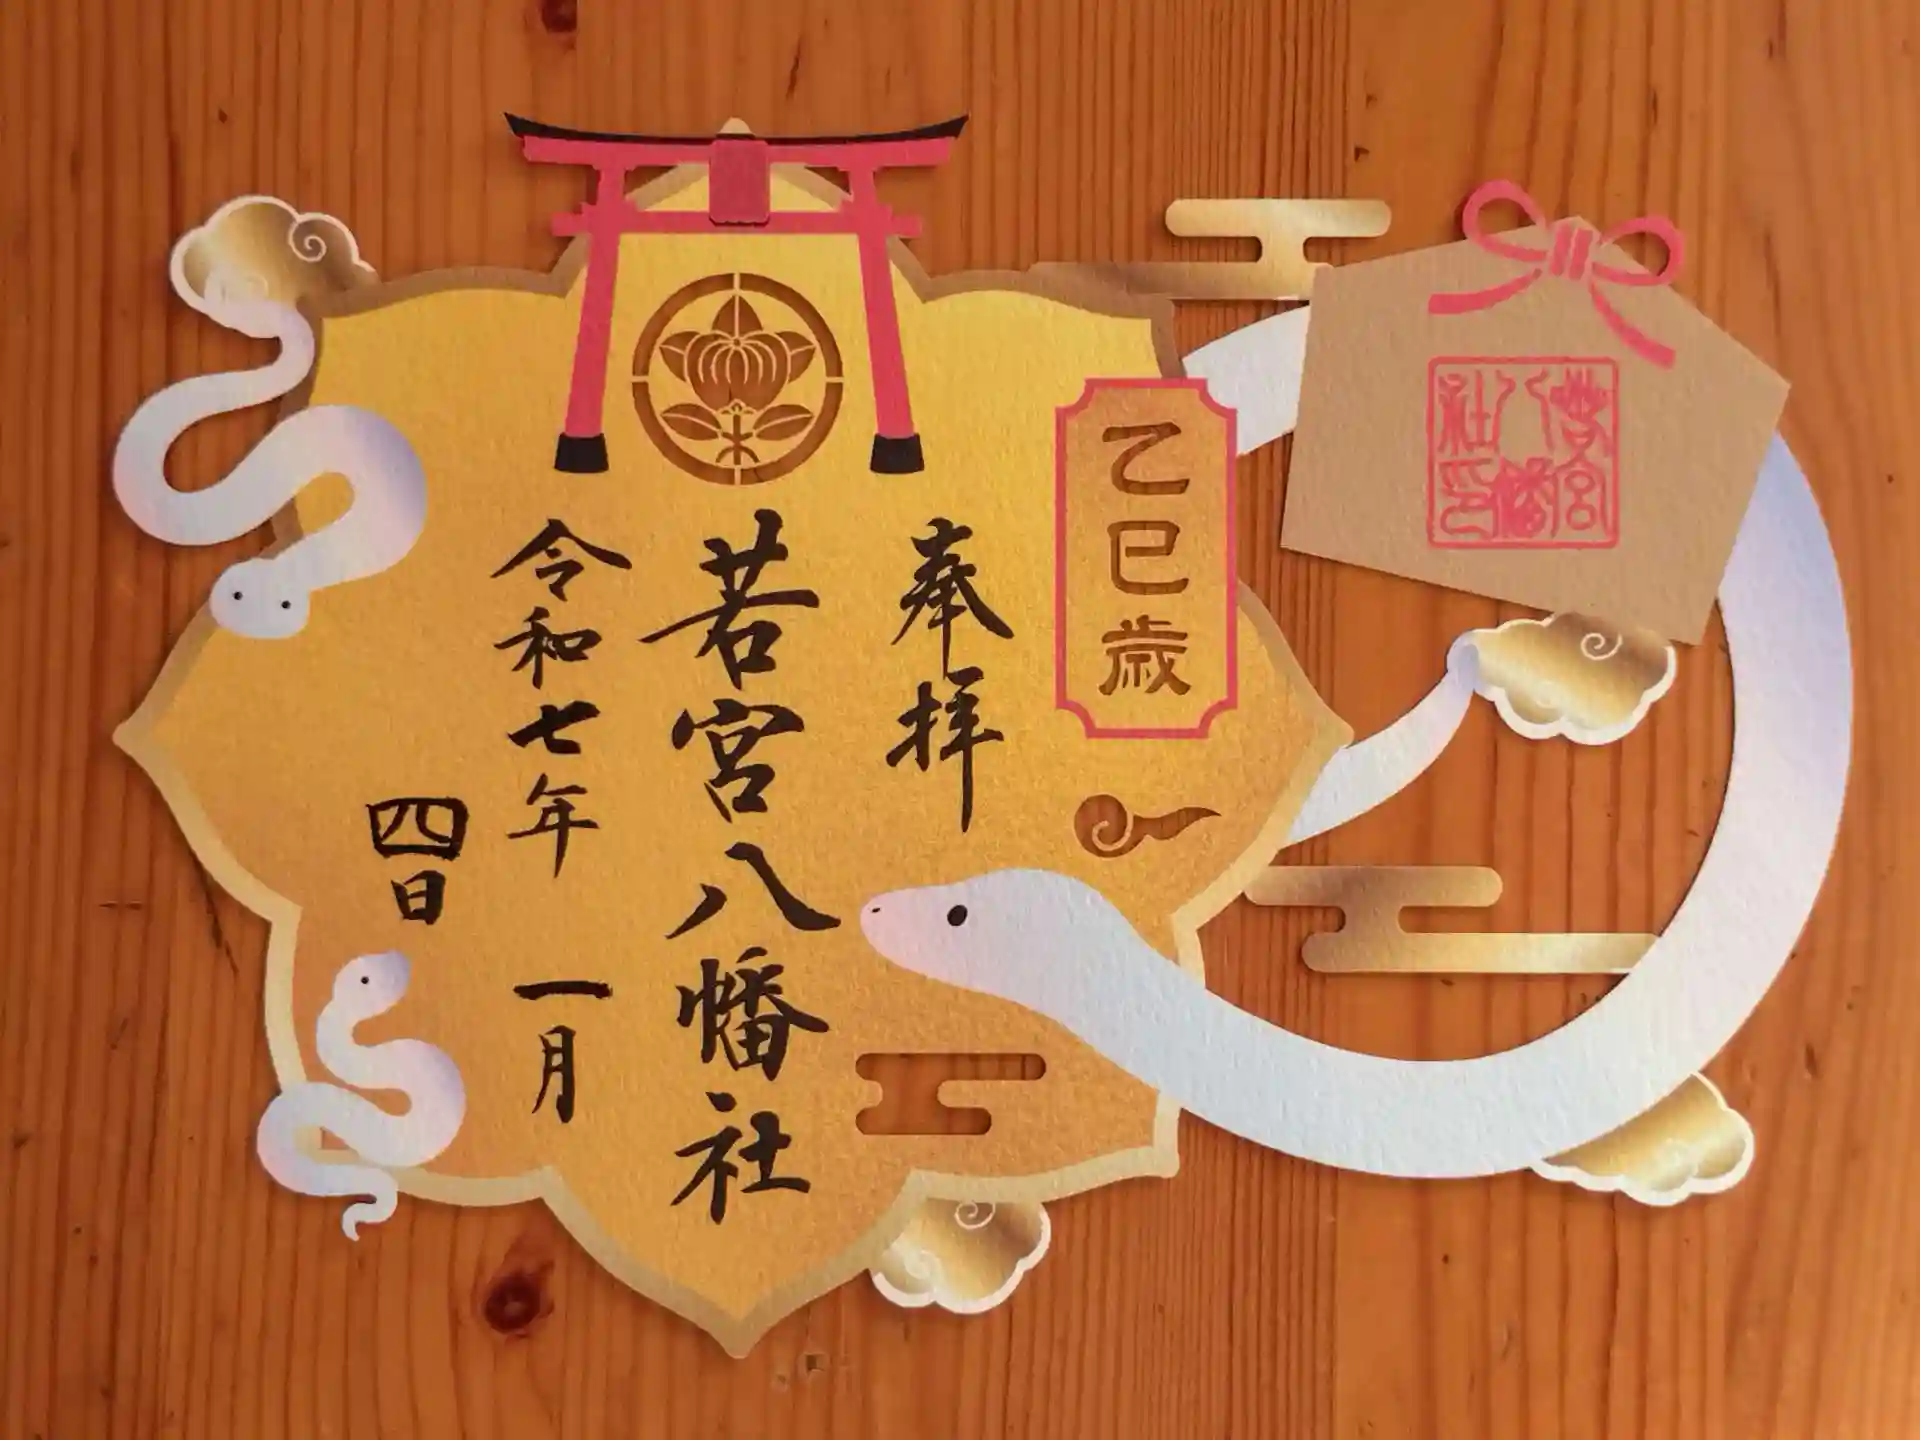 乙巳歳
奉拝
若宮八幡社
令和七年 一月
四日
若宮
八幡
社印